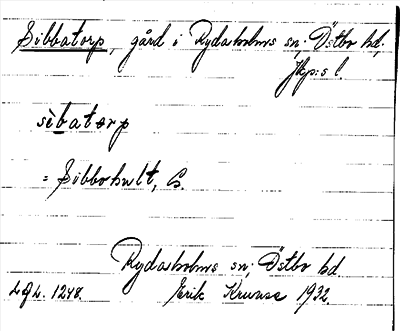 Sibbatorp, gård i Rydaholms sn; Östbo hd;
Jkp:s l.
sìbatorp
= Sibbohult, C.
Rydaholms sn; Östbo hd
Erik Kruuse 1932.
LGL. 1248.